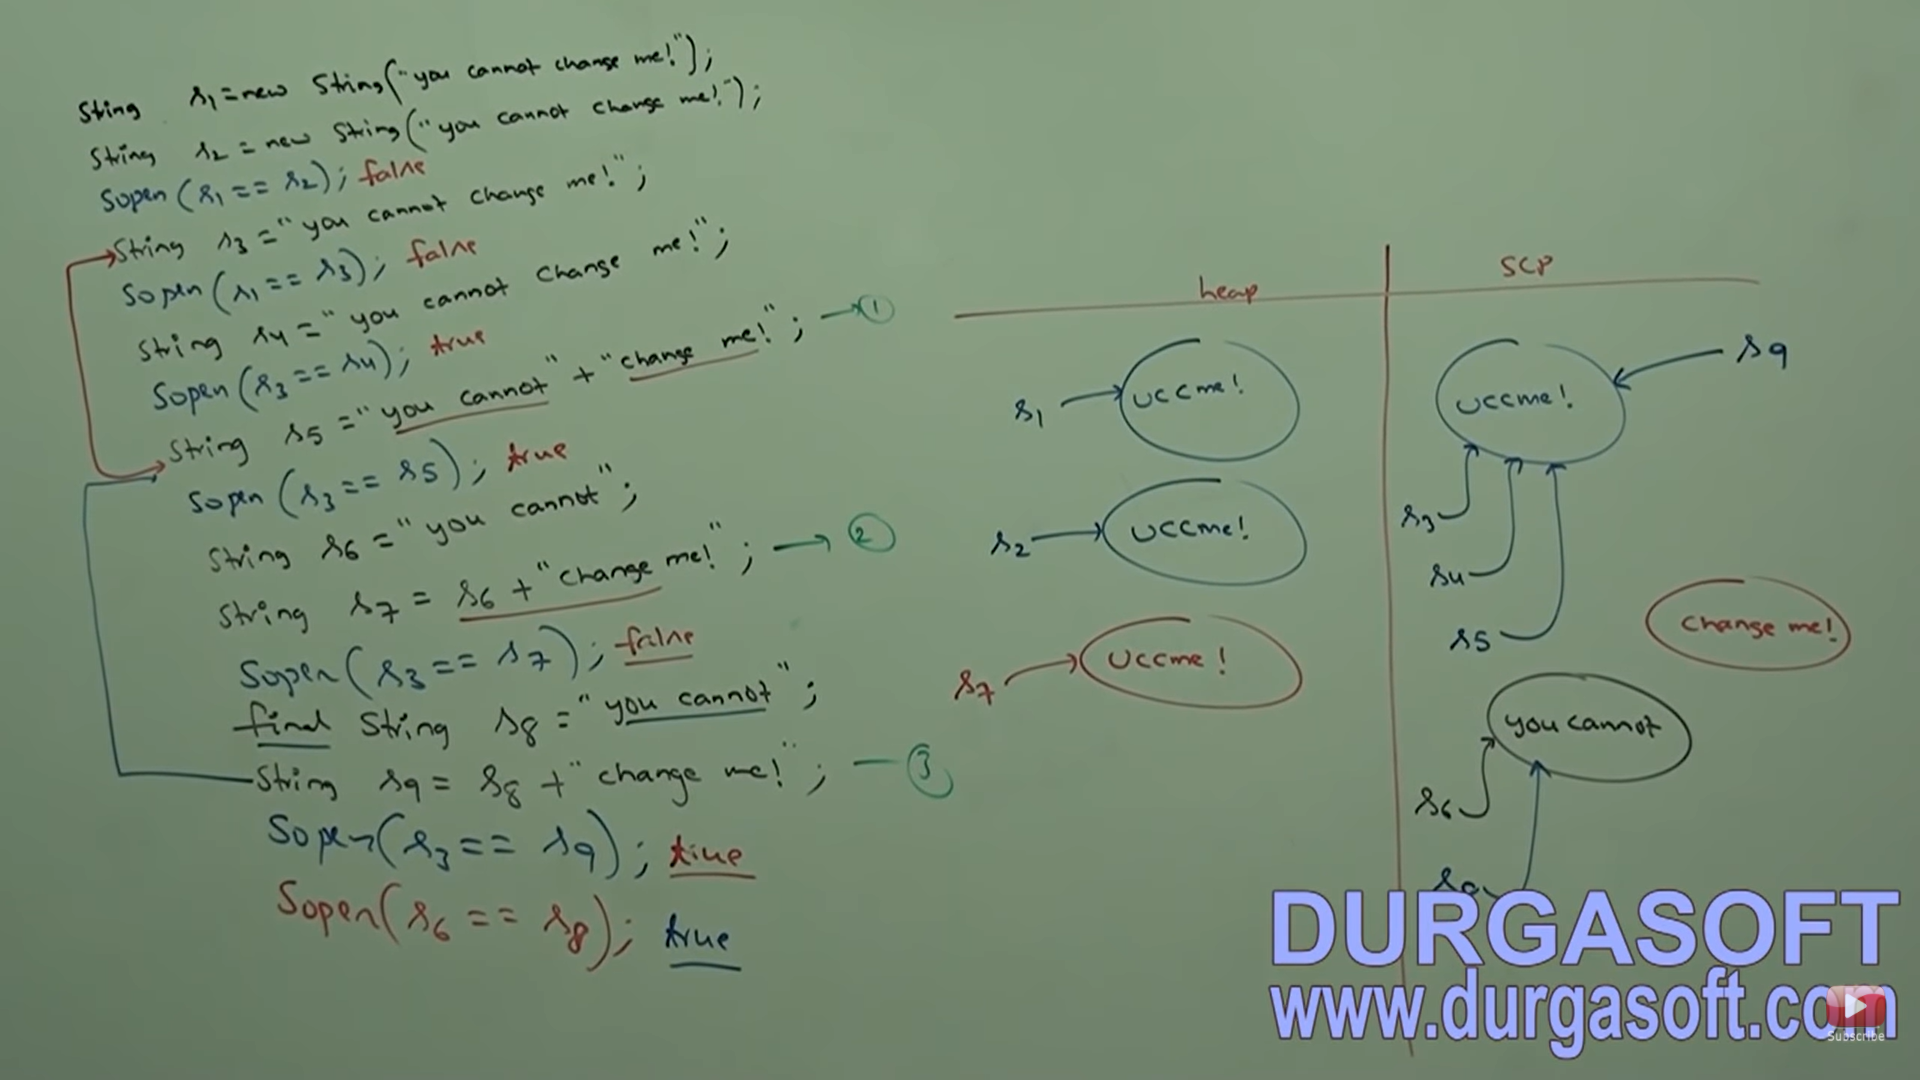 String s1=new String("you cannot change me!");
String s2 = new String("you cannot change me!");
Sopen(s1== s2); false
String s3 ="you cannot change me!";
Sopen(s1== s3); false
String s4 ="you cannot change me!";
Sopen(s3== s4); true
String s5 ="you cannot" + "change me!"; → 1
Sopen(s3== s5); true
String s6 = "you cannot";
String s7 = s6 + "change me!"; → 2
Sopen(s3== s7); false
final String s8 = "you cannot";
String s9 = s8 + "change me!"; — 3
Sopen(s3== s9); true
Sopen(s6 == s8); true
heap
SCP
s1
UCCme!
UCCme!
s9
s2
UCCme!
s3
s4
s5
change me!
s7
UCCme!
you cannot
s6
DURGASOFT
www.durgasoft.com
Subscribe